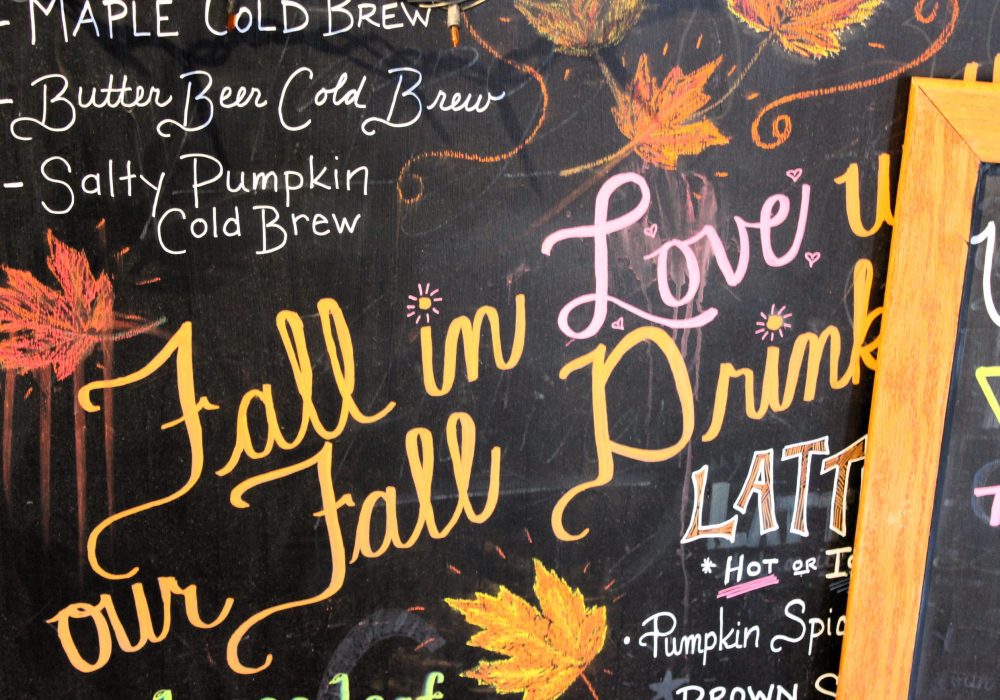 - MAPLE COLD BREW
- Butter Beer Cold Brew
- Salty Pumpkin
Cold Brew
Fall in Love
our Fall Drink
LATT
* HOT OR
• Pumpkin Spic
BROWN